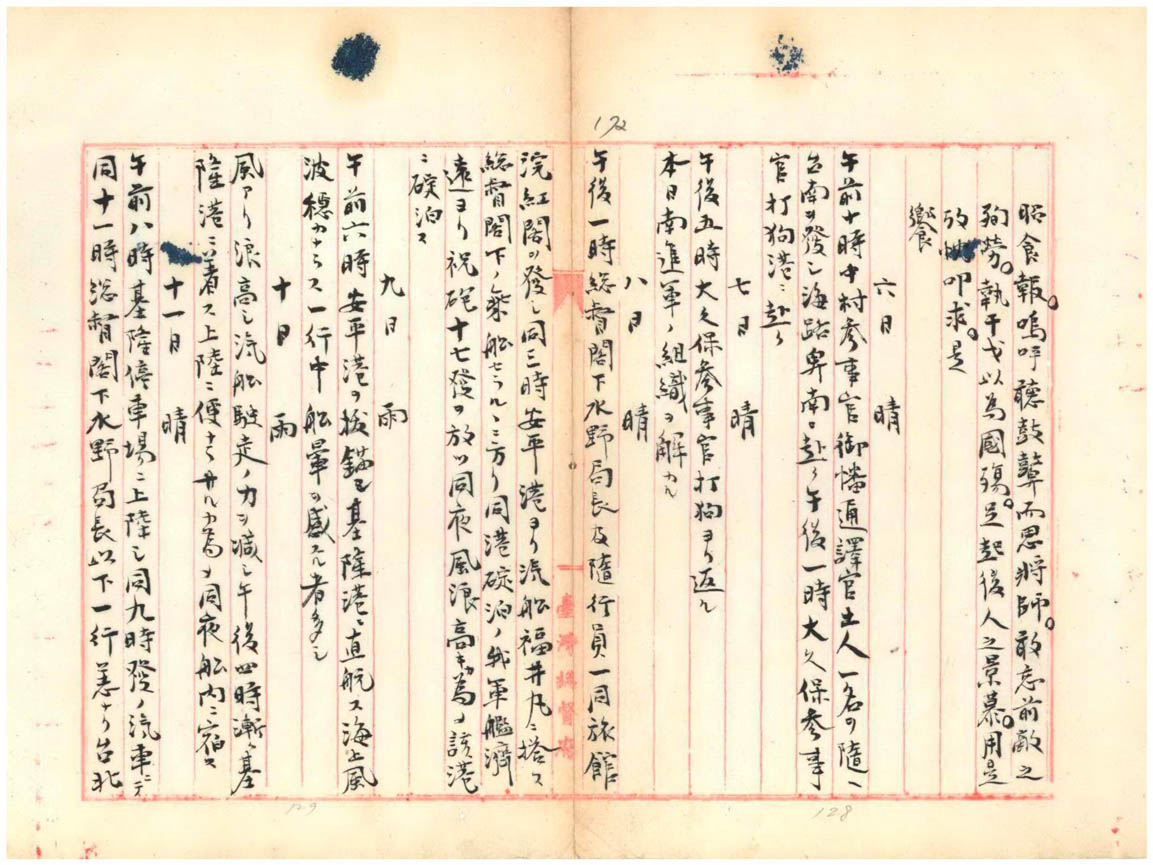 172
昭食報。嗚呼聽鼓鼙而思將師。敢忘前敵之
殉勞。執干戈以為國殤。足起後人之景慕。用是
叩求。是
饗
六日　晴
午前十時中村参事官御幡通譯官土人一名ヲ随ヘ
台南ヲ發シ海路卑南ニ赴ク午後一時大久保参事
官打狗港ニ赴ク
七日　晴
午後五時大久保参事官打狗ヨリ返ル
本日南進軍ノ組織ヲ解カル
八日　晴
午後一時総督閣下水野局長及随行員一同旅館
浣紅閣ヲ發シ同三時安平港ヨリ汽船福井丸ニ搭ス
総督閣下ノ乗船セラルヽニ方リ同港碇泊ノ我軍艦濟
遠ヨリ祝砲十七發ヲ放ツ同夜風浪高キカ為メ該港
ニ碇泊ス
九日　雨
午前六時安平港ヲ抜錨シ基隆港ニ直航ス海上風
波穏カナラス一行中船暈ヲ感スル者多シ
十日　雨
風アリ浪高シ汽船駛走ノ力ヲ减シ午後四時漸ク基
隆港ニ着ス上陸ニ便ナラサルカ為メ同夜船内ニ宿ス
十一日　晴
午前八時基隆停車場ニ上陸シ同九時發ノ汽車ニテ
同十一時総督閣下水野局長以下一行恙ナク台北
臺灣總督府
128
129